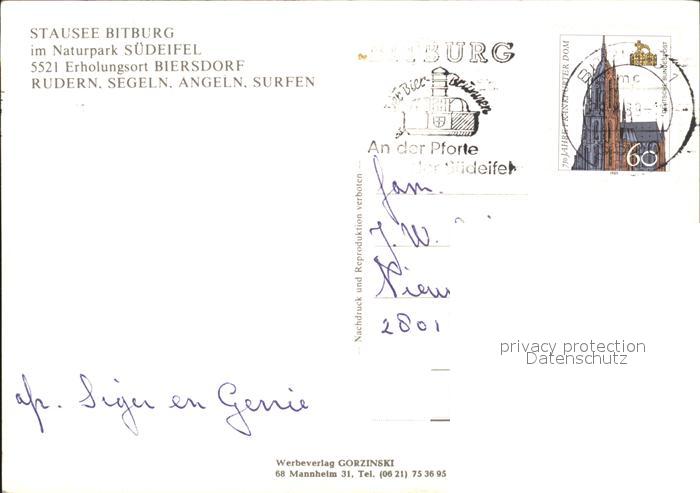 STAUSEE BITBURG
im Naturpark SÜDEIFEL
5521 Erholungsort BIERSDORF
RUDERN, SEGELN, ANGELN, SURFEN
BITBURG
An der Pforte
der Südeifel
750 JAHRE FRANKFURTER DOM
60
Nachdruck und Reproduktion verboten
Fam.
J. W.
2801
privacy protection
Datenschutz
afz. Siger en Gerrie
Werbeverlag GORZINSKI
68 Mannheim 31, Tel. (06 21) 75 36 95